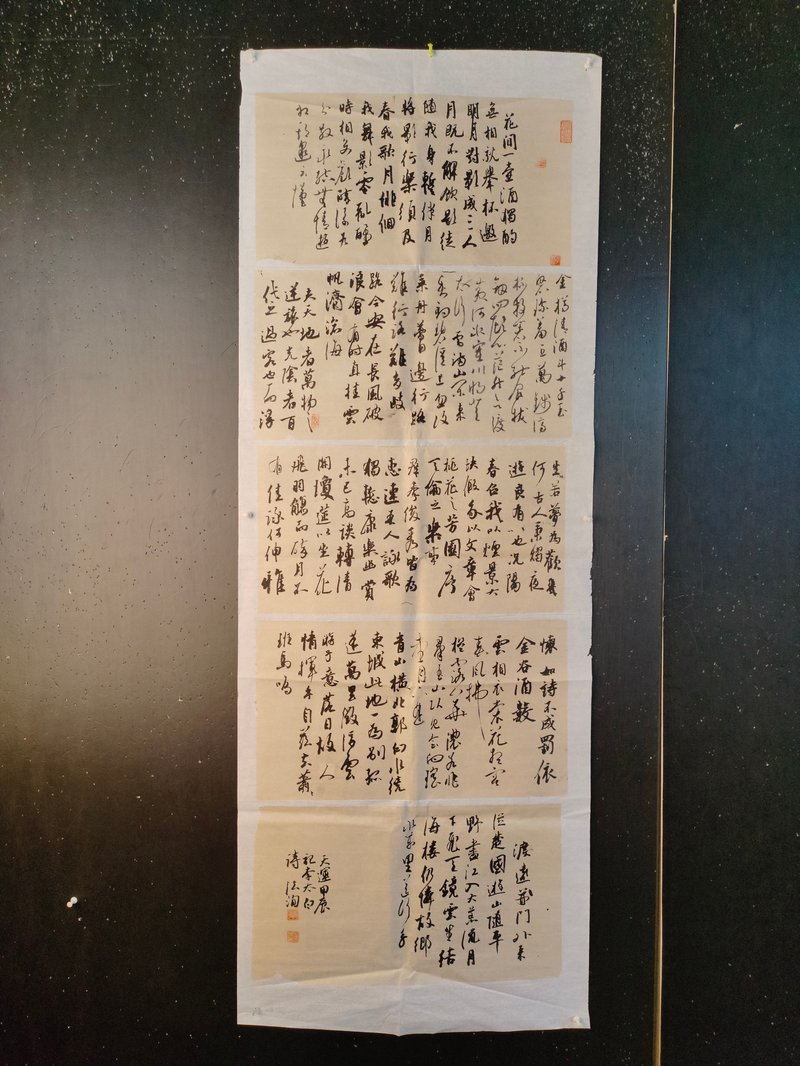 花间一壶酒獨酌
無相親舉杯邀
明月對影成三人
月既不解飲影徒
隨我身暫伴月
將影行樂須及
春我歌月徘徊
我舞影零亂醒
時相交歡醉後各
分散永結無情遊
相期邈雲漢
金樽清酒斗十千玉
盤珍羞直萬錢停
杯投箸不能食拔
劍四顧心茫然欲渡
黃河冰塞川將登
太行雪滿山閑來
垂釣碧溪上忽復
乘舟夢日邊行路
難行路難多歧
路今安在長風破
浪會有時直挂雲
帆濟滄海
夫天地者萬物之
逆旅也光陰者百
代之過客也而浮
生若夢為歡幾
何古人秉燭夜
遊良有以也況陽
春召我以煙景大
塊假我以文章會
桃花之芳園序
天倫之樂事
群季俊秀皆為
惠連吾人詠歌
獨慙康樂幽賞
未已高談轉清
開瓊筵以坐花
飛羽觴而醉月不
有佳詠何伸雅
懷如詩不成罰依
金谷酒數
雲想衣裳花想容
春風拂
檻露華濃若非
羣玉山頭見會向瑤
臺月下逢
青山橫北郭白水繞
東城此地一為別孤
蓬萬里征浮雲
遊子意落日故人
情揮手自茲去蕭蕭
班馬鳴
渡遠荊門外來
從楚國遊山隨平
野盡江入大荒流月
下飛天鏡雲生結
海樓仍憐故鄉
水萬里送行舟
天運甲辰
記李太白
詩 法洵